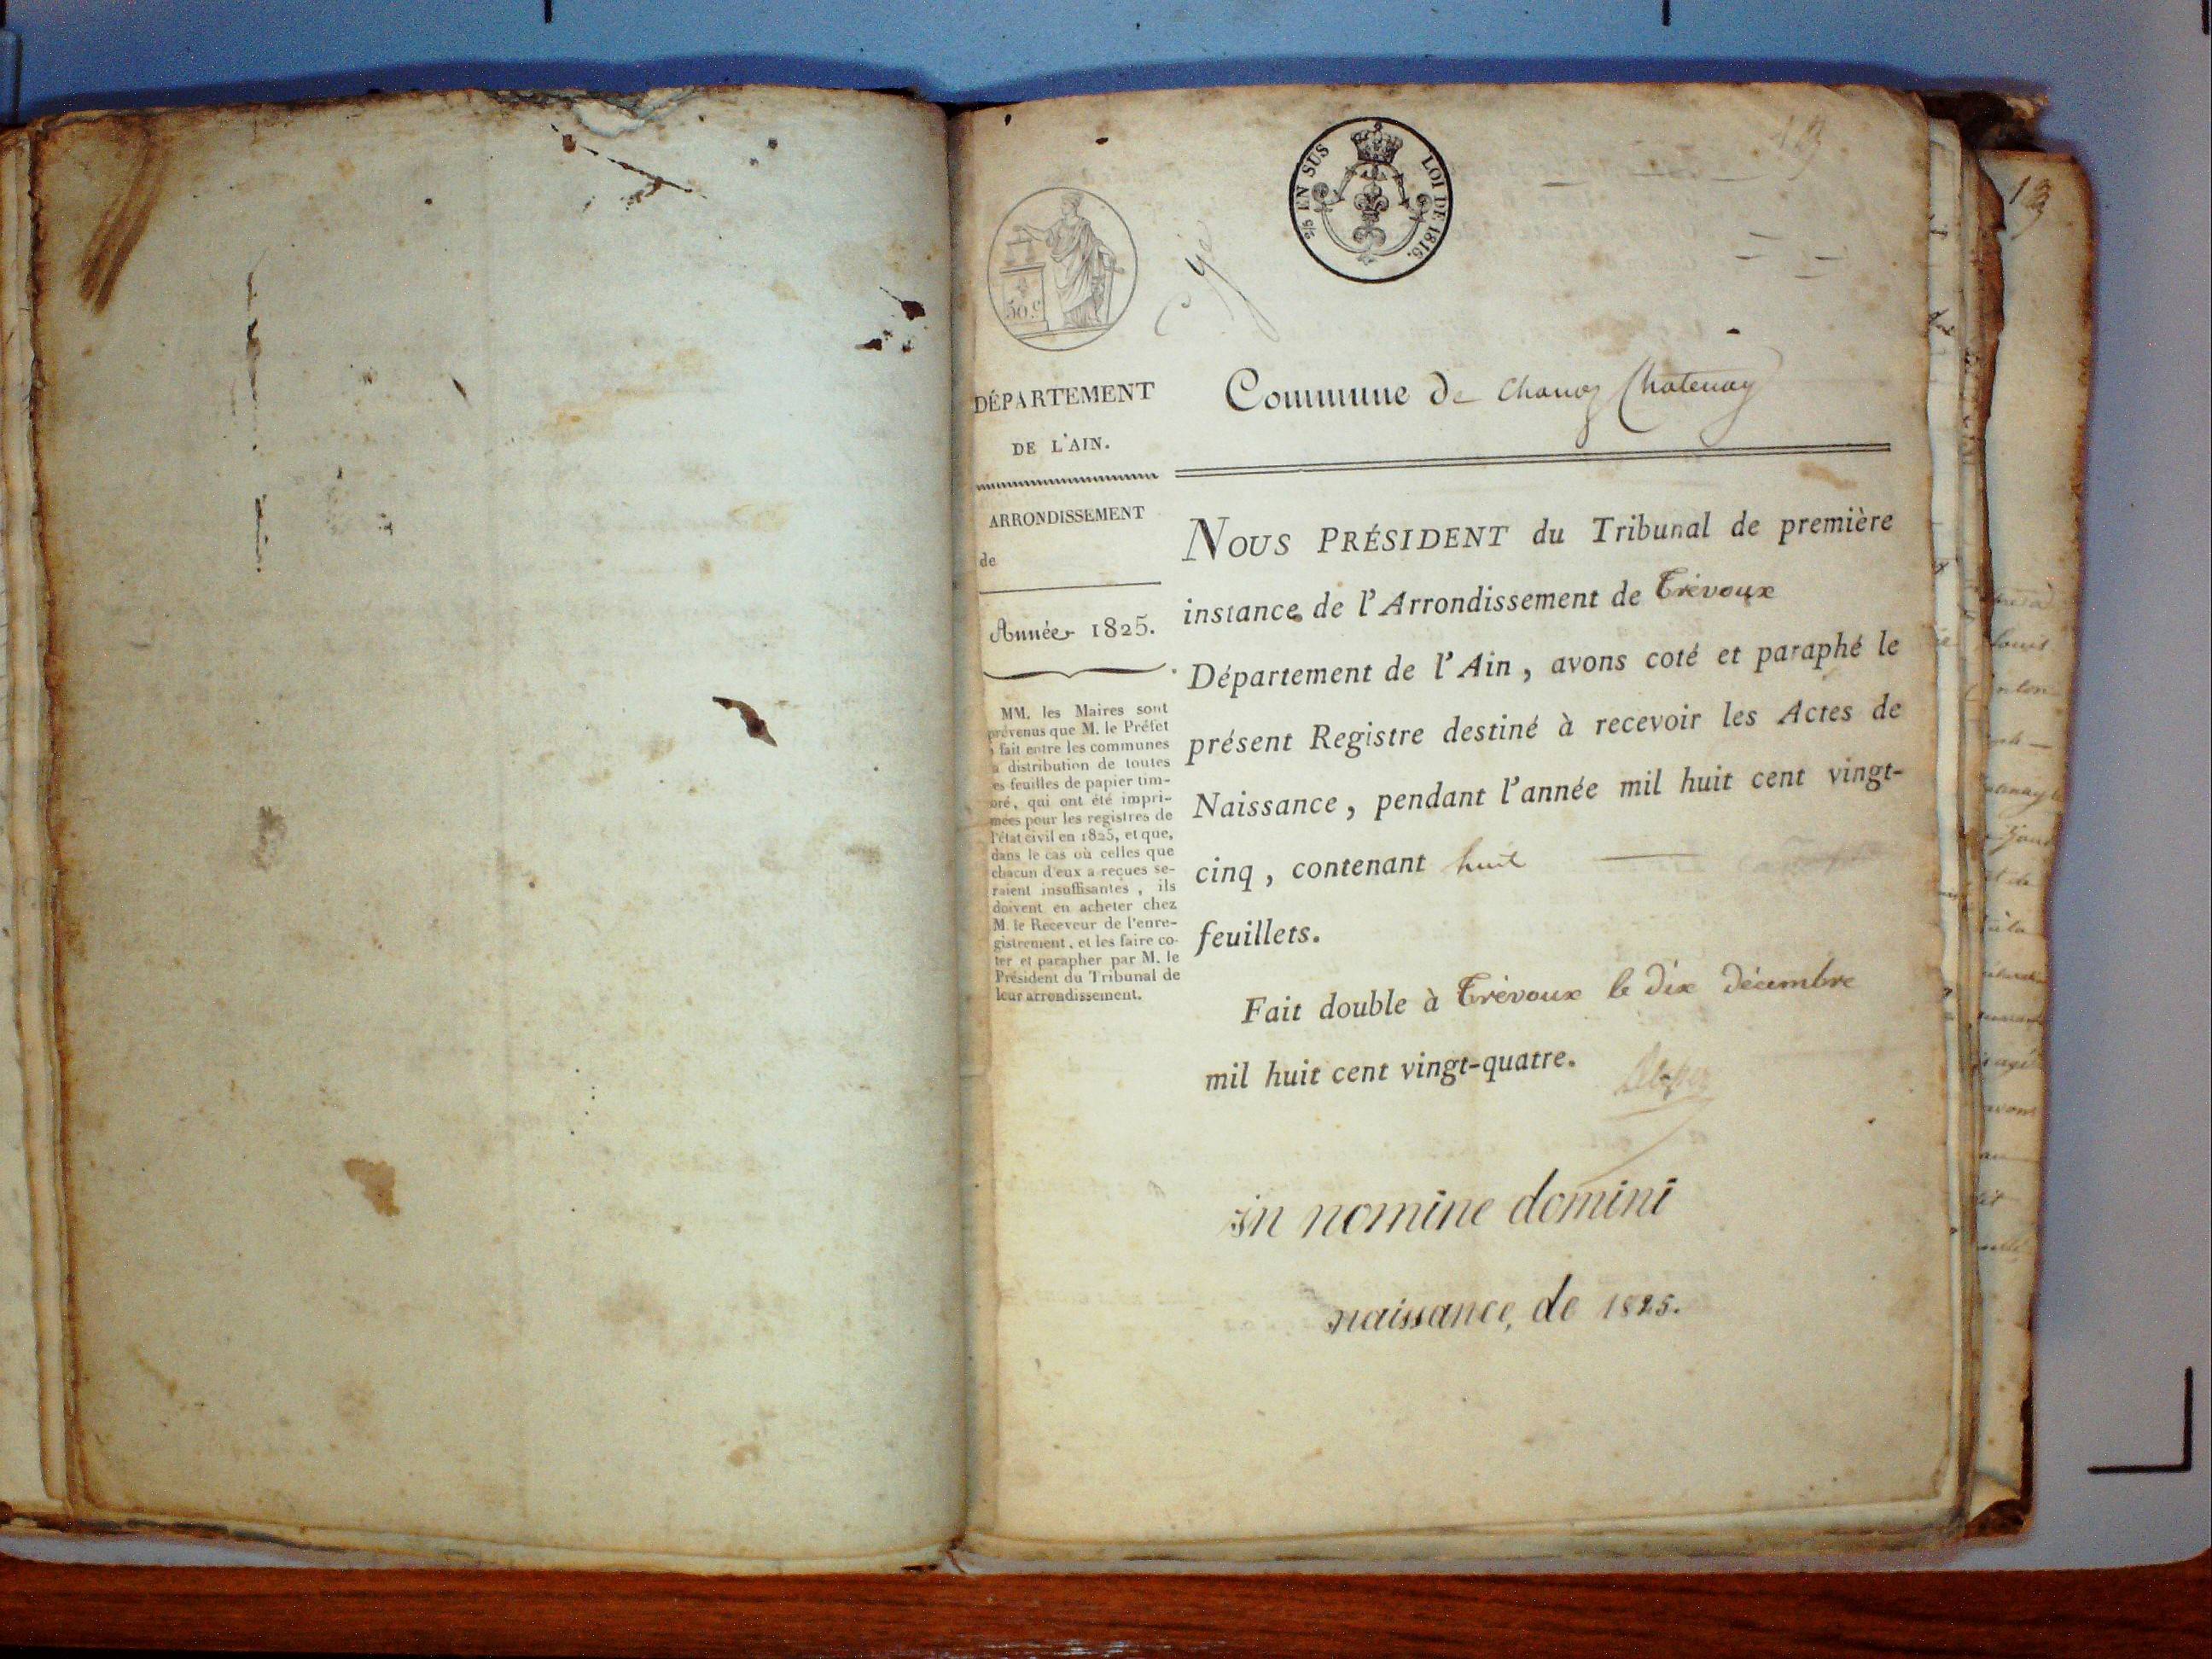 5/5 EN SUS LOI DE 1816.
50 c
13
DÉPARTEMENT
DE L'AIN.
ARRONDISSEMENT
de
Année 1825.
MM. les Maires sont
prévenus que M. le Préfet
a fait entre les communes
a distribution de toutes
es feuilles de papier tim-
bré, qui ont été impri-
mées pour les registres de
l'état civil en 1825, et que,
dans le cas où celles que
chacun d'eux a reçues se-
raient insuffisantes, ils
doivent en acheter chez
M. le Receveur de l'enre-
gistrement, et les faire co-
ter et parapher par M. le
Président du Tribunal de
leur arrondissement.
Commune de Chanoz Chatenay
NOUS PRÉSIDENT du Tribunal de première
instance de l'Arrondissement de Trévoux
Département de l'Ain, avons coté et paraphé le
présent Registre destiné à recevoir les Actes de
Naissance, pendant l'année mil huit cent vingt-
cinq, contenant huit
feuillets.
Fait double à Trévoux le dix décembre
mil huit cent vingt-quatre.
in nomine domini
naissance, de 1825.